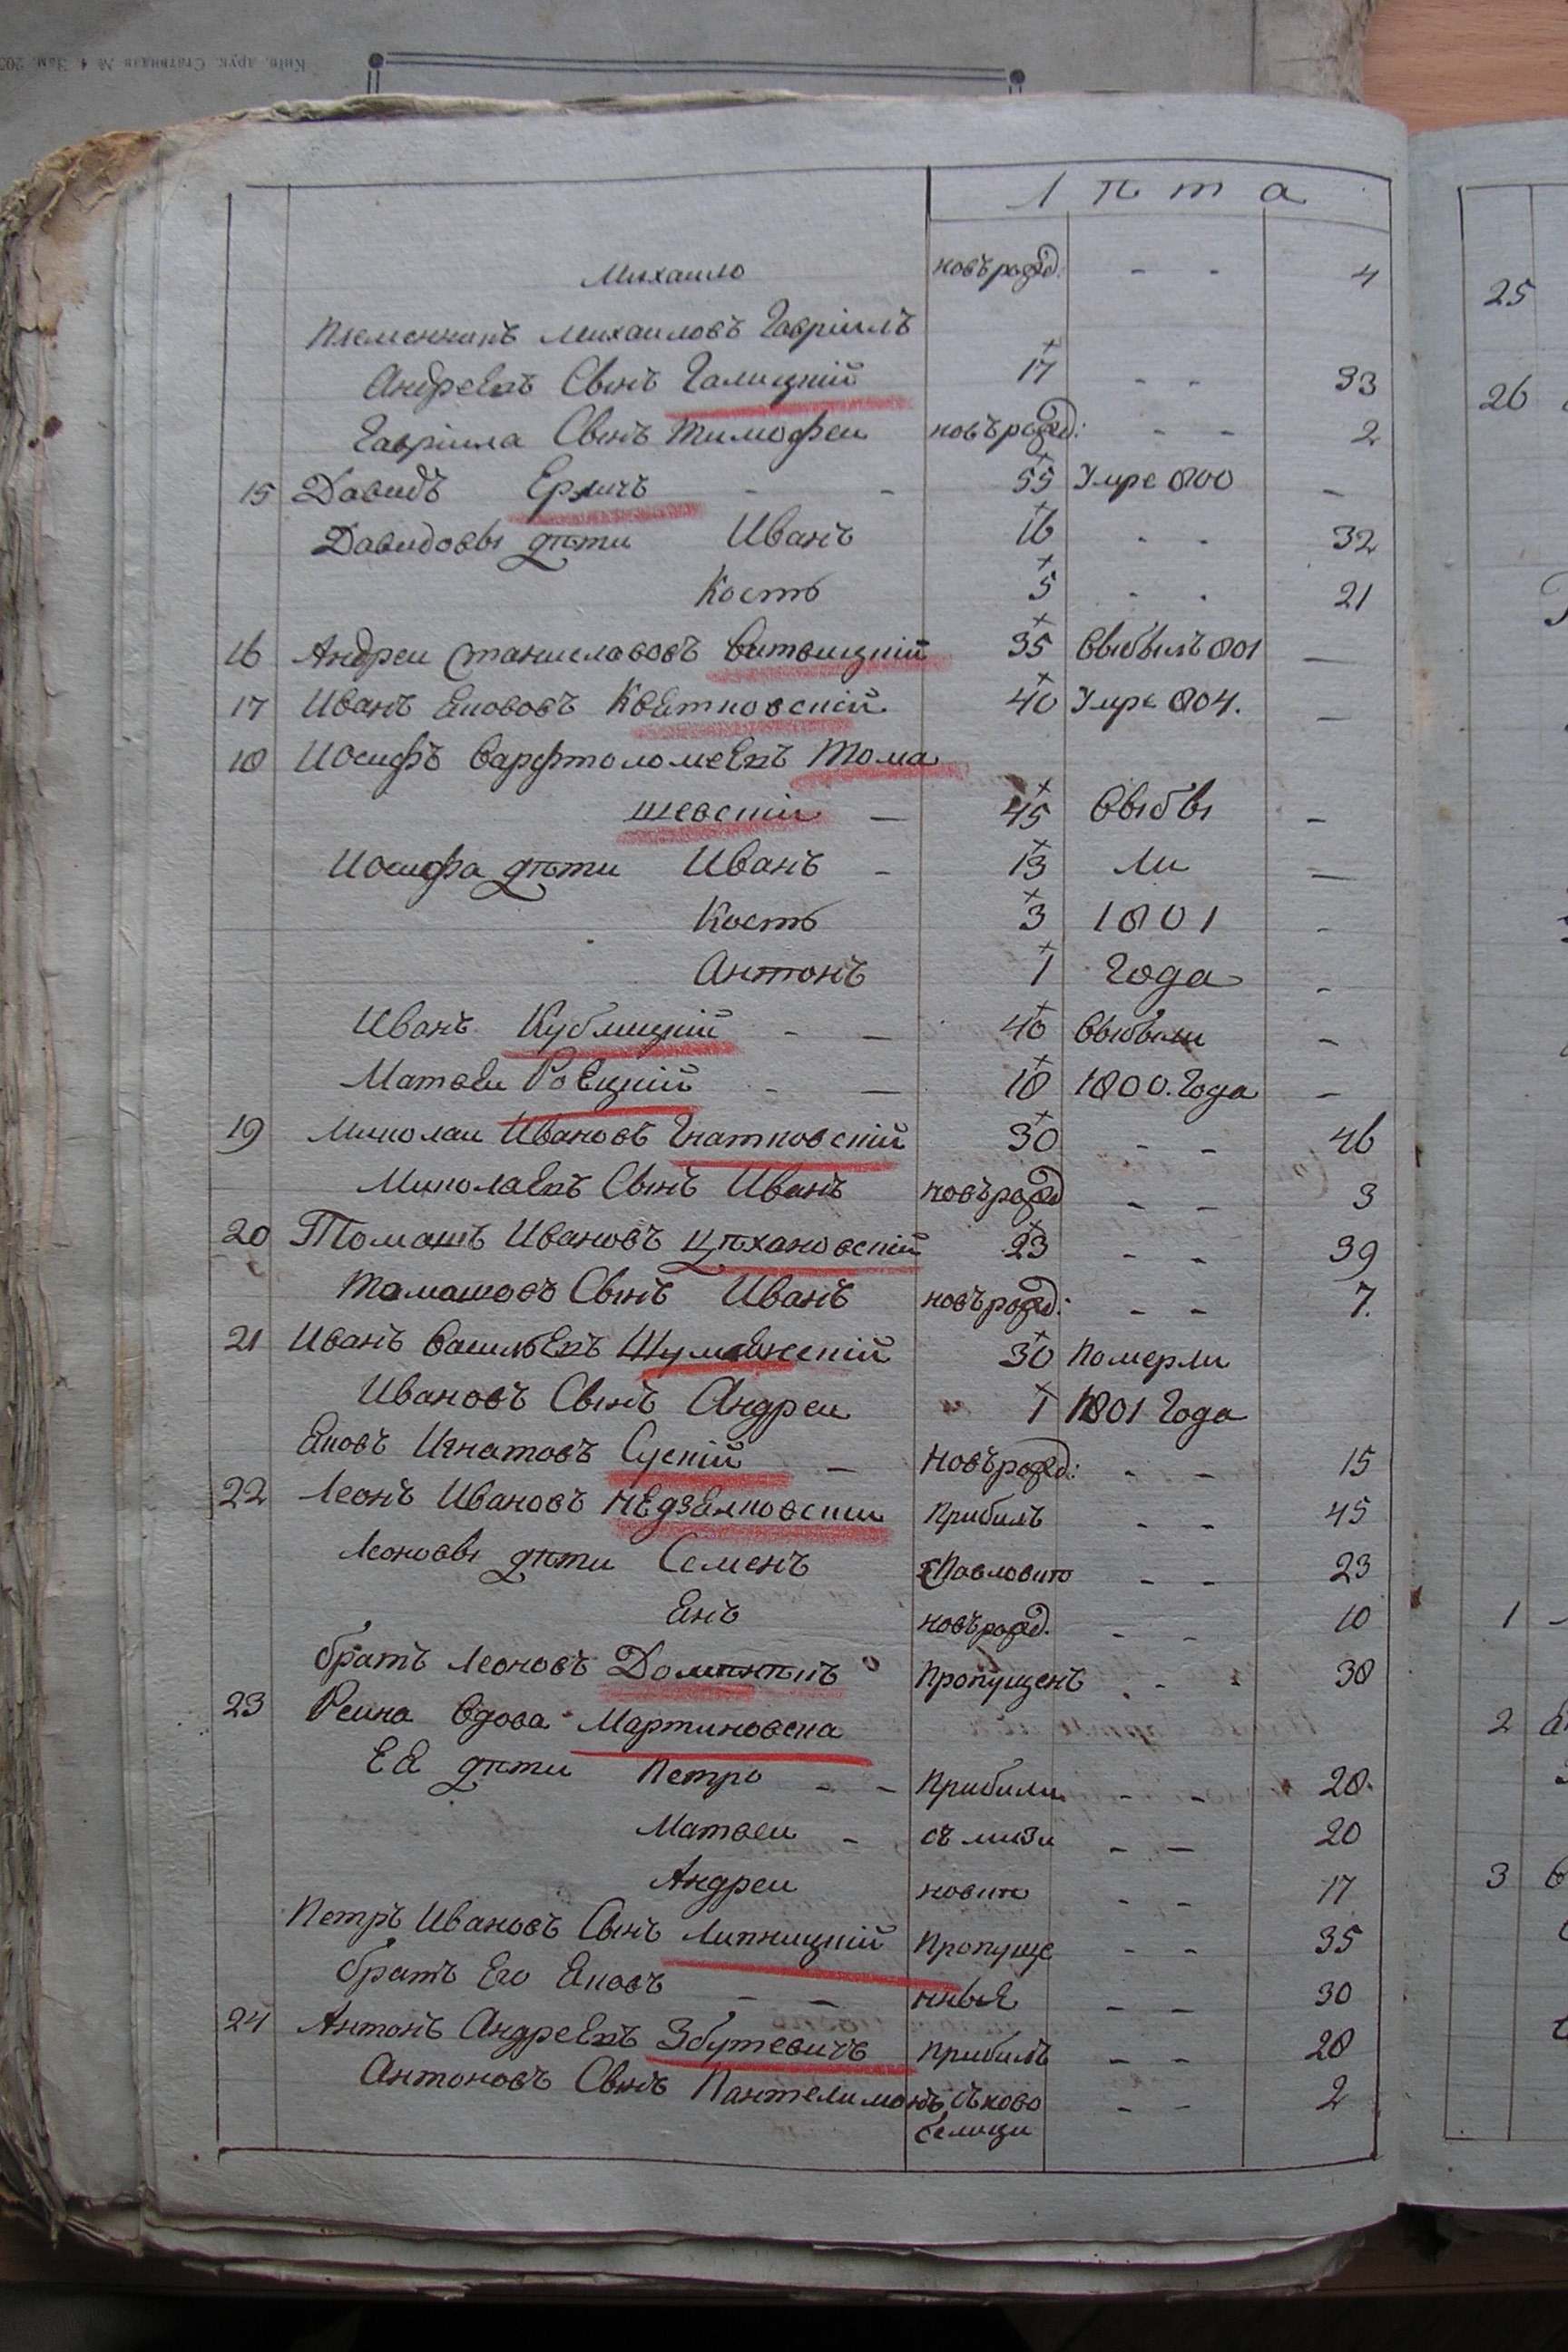 Лѣта
Михаило новърожд: - - 4
Племенникъ Михаиловъ Гавріилъ
Андреевъ Сынъ Галицкій 17 - - 33
Гавріила Сынъ Тимофеи новърожд: - - 2
15 Давидъ Ерличъ - - 55 Умре 800 -
Давидовы дѣти Иванъ 16 - - 32
Кость 5 - - 21
16 Андреи Станиславовъ Витвицкій 35 Выбылъ 801 -
17 Иванъ Якововъ Квятковскій 40 Умре 804. -
18 Иосифъ Варфтоломеевъ Тома
шевскіи - 45 Выбы -
Иосифа дѣти Иванъ - 13 ли -
Кость 3 1801 -
Антонъ 1 Года -
Иванъ Кублицкій - - 40 Выбыли -
Матвеи Роецкій - - 18 1800. Года -
19 Миколаи Ивановъ Гнатковскій 30 - - 46
Миколаевъ Сынъ Иванъ новърожд - - 3
20 Томашъ Ивановъ Цѣхановскій 23 - - 39
Томашовъ Сынъ Иванъ новърожд: - - 7.
21 Иванъ Васильевъ 30 Померли
Ивановъ Сынъ Андреи 1 1801 Года
Яковъ Игнатовъ Сускій - Новърожд: - - 15
22 Леонъ Ивановъ Недзелковскіи Прибылъ - - 45
Леоновы дѣти Семенъ сПавловито - - 23
Янъ новърожд. - - 10
братъ Леоновъ Доминикъ Пропущенъ - - 38
23 Реина Вдова Мартиновска
Ея дѣти Петро - - Прибили - - 28.
Матвеи - съ лизи - - 20
Андреи новито - - 17
Петръ Ивановъ Сынъ Липницкій Пропуще - - 35
братъ Его Яковъ - - нные - - 30
24 Антонъ Андреевъ Збутевичъ Прибылъ - - 28
Антоновъ Сынъ Пантелимонъ съ ково - - 2
белици
25
26
1
2
3